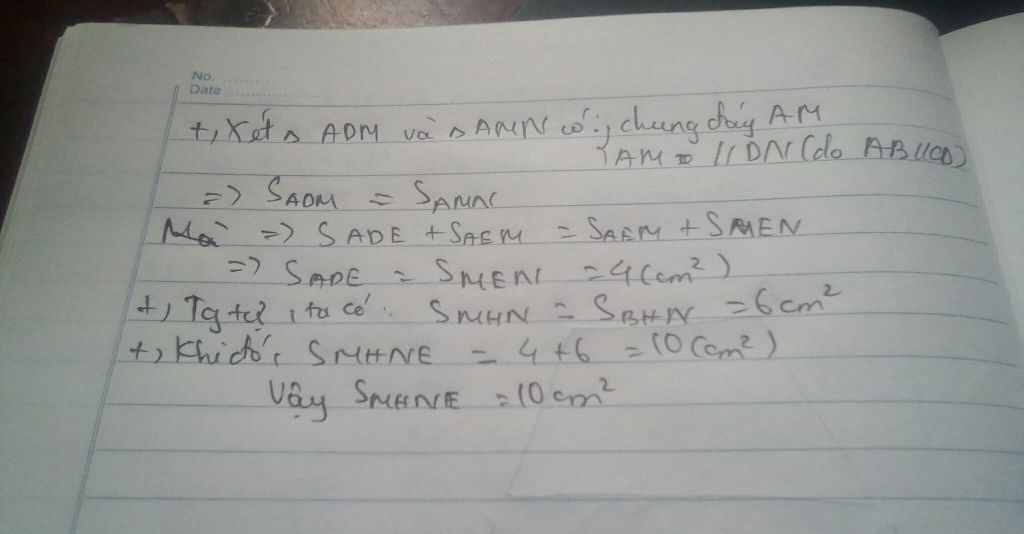 No. ..........
Date ....................
+, Xét Δ ADM và Δ AMN có: chung đáy AM
AM // DN (do AB//CD)
=> SADM = SAMN
=> SADE + SAEM = SAEM + SMEN
=> SADE = SMEN = 4 (cm²)
+, Tg tự, ta có: SMHN = SBHN = 6cm²
+, Khi đó, SMHNE = 4+6 = 10 (cm²)
Vậy SMHNE = 10 cm²